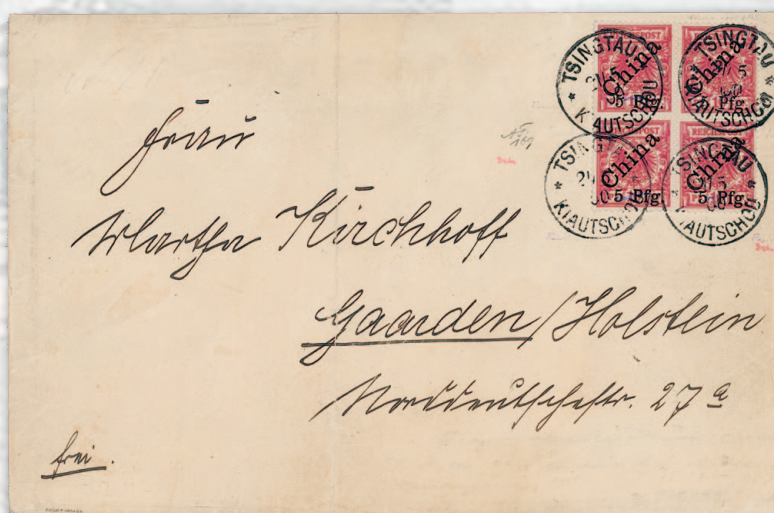 REICHSPOST
China
5 Pfg.
China
5 Pfg.
China
5 Pfg.
China
5 Pfg.
* TSINGTAU *
KIAUTSCHOU
* TSINGTAU *
KIAUTSCHOU
* TSINGTAU *
KIAUTSCHOU
* TSINGTAU *
KIAUTSCHOU
Frau
Martha Kirchhoff
Gaarden/Holstein
Norddeutschestr. 27a
frei.